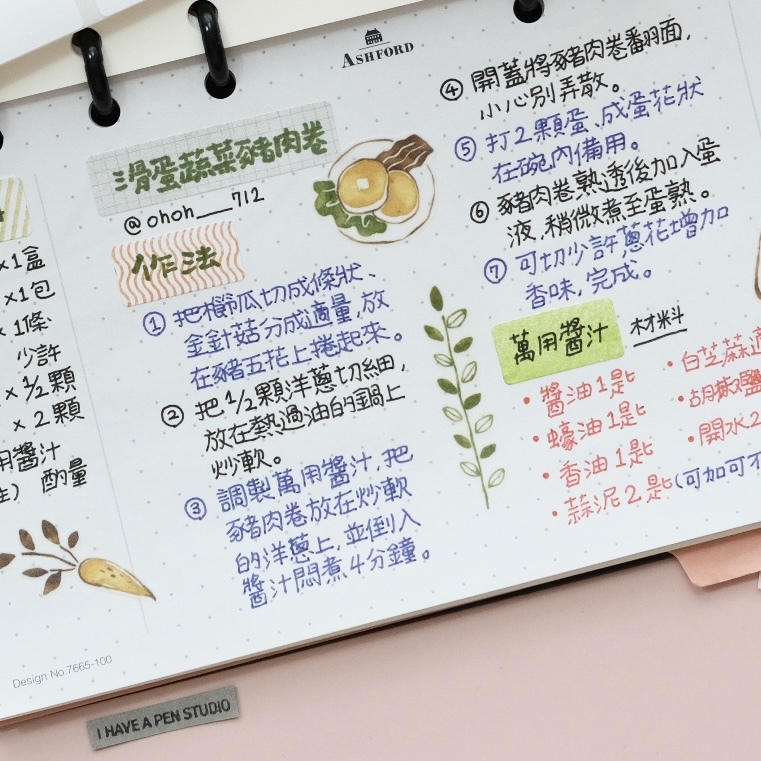 ASHFORD
滑蛋蔬菜豬肉卷
@ohoh__712
作法
×1盒
×1包
×1條
少許
×½顆
×2顆
用醬汁
酌量
① 把櫛瓜切成條狀、
金針菇分成適量,放
在豬五花上捲起來。
② 把1/2顆洋蔥切細,
放在熱過油的鍋上
炒軟。
③ 調製萬用醬汁,把
豬肉卷放在炒軟
的洋蔥上,並倒入
醬汁悶煮4分鐘。
④ 開蓋將豬肉卷翻面,
小心別弄散。
⑤ 打2顆蛋,成蛋花狀
在碗內備用。
⑥ 豬肉卷熟透後加入蛋
液,稍微煮至蛋熟。
⑦ 可切少許蔥花增加
香味,完成。
萬用醬汁 材料
• 醬油1匙
• 蠔油1匙
• 香油1匙
• 蒜泥2匙(可加可不
• 白芝蔴適
• 胡椒鹽
• 開水2
Design No.7665-100
I HAVE A PEN STUDIO